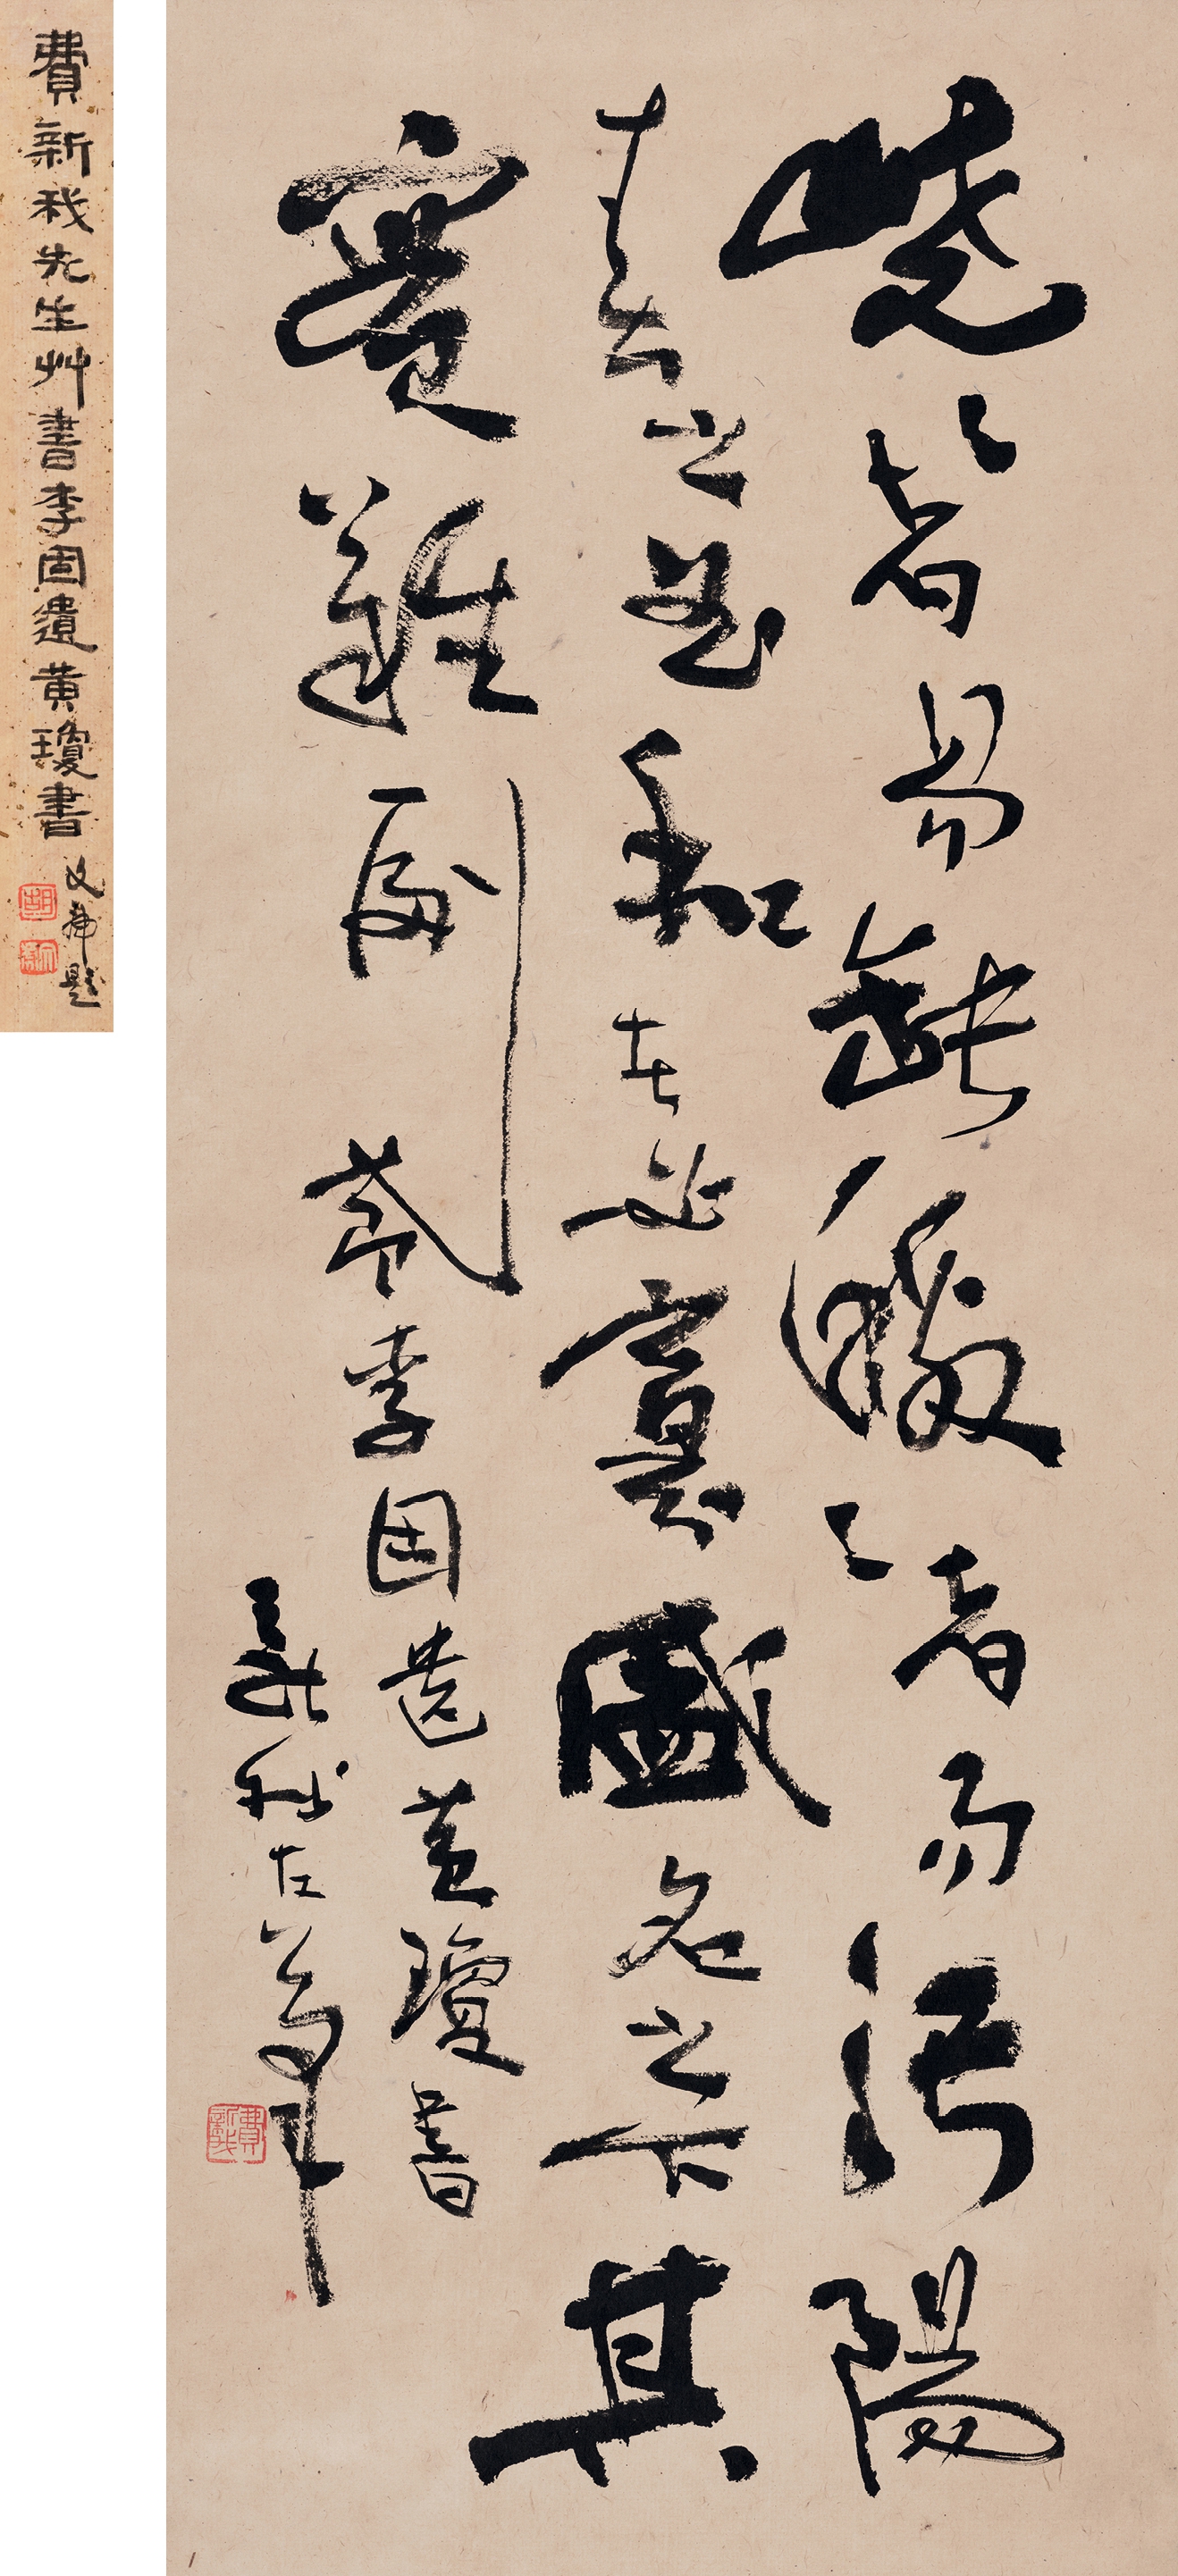 嶢〻者易缺皦〻者易污陽
春之曲和者必寡盛名之下其
實難副 節李固遺黃瓊書
左筆
費新我
費新我先生艸書李固遺黃瓊書
題